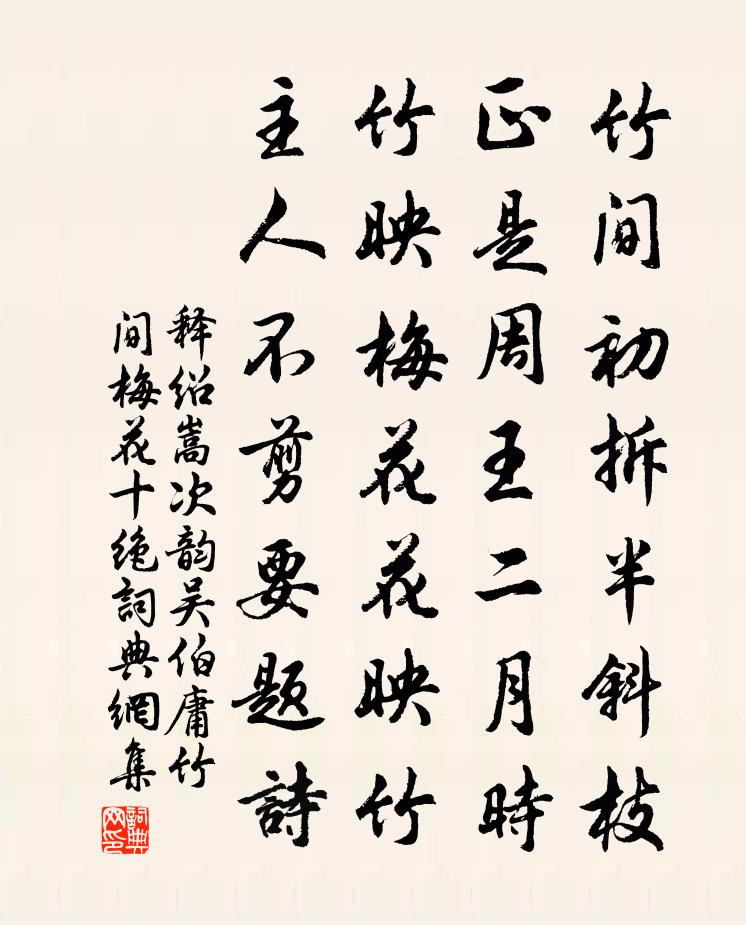 竹间初拆半斜枝
正是周王二月时
竹映梅花花映竹
主人不剪要题詩
释绍嵩次韵吴伯庸竹
间梅花十绝詞典網集
詞典
网印